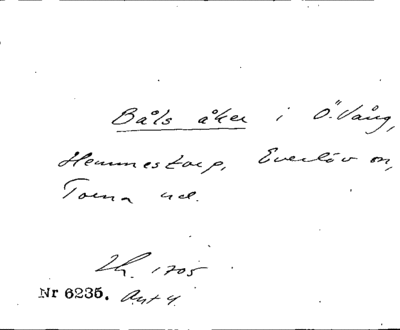 Båls åker i Ö. Vång,
Hemmestorp, Everlöv sn,
Torna hd.
Lh. 1705
Nr 6235. Akt 4.